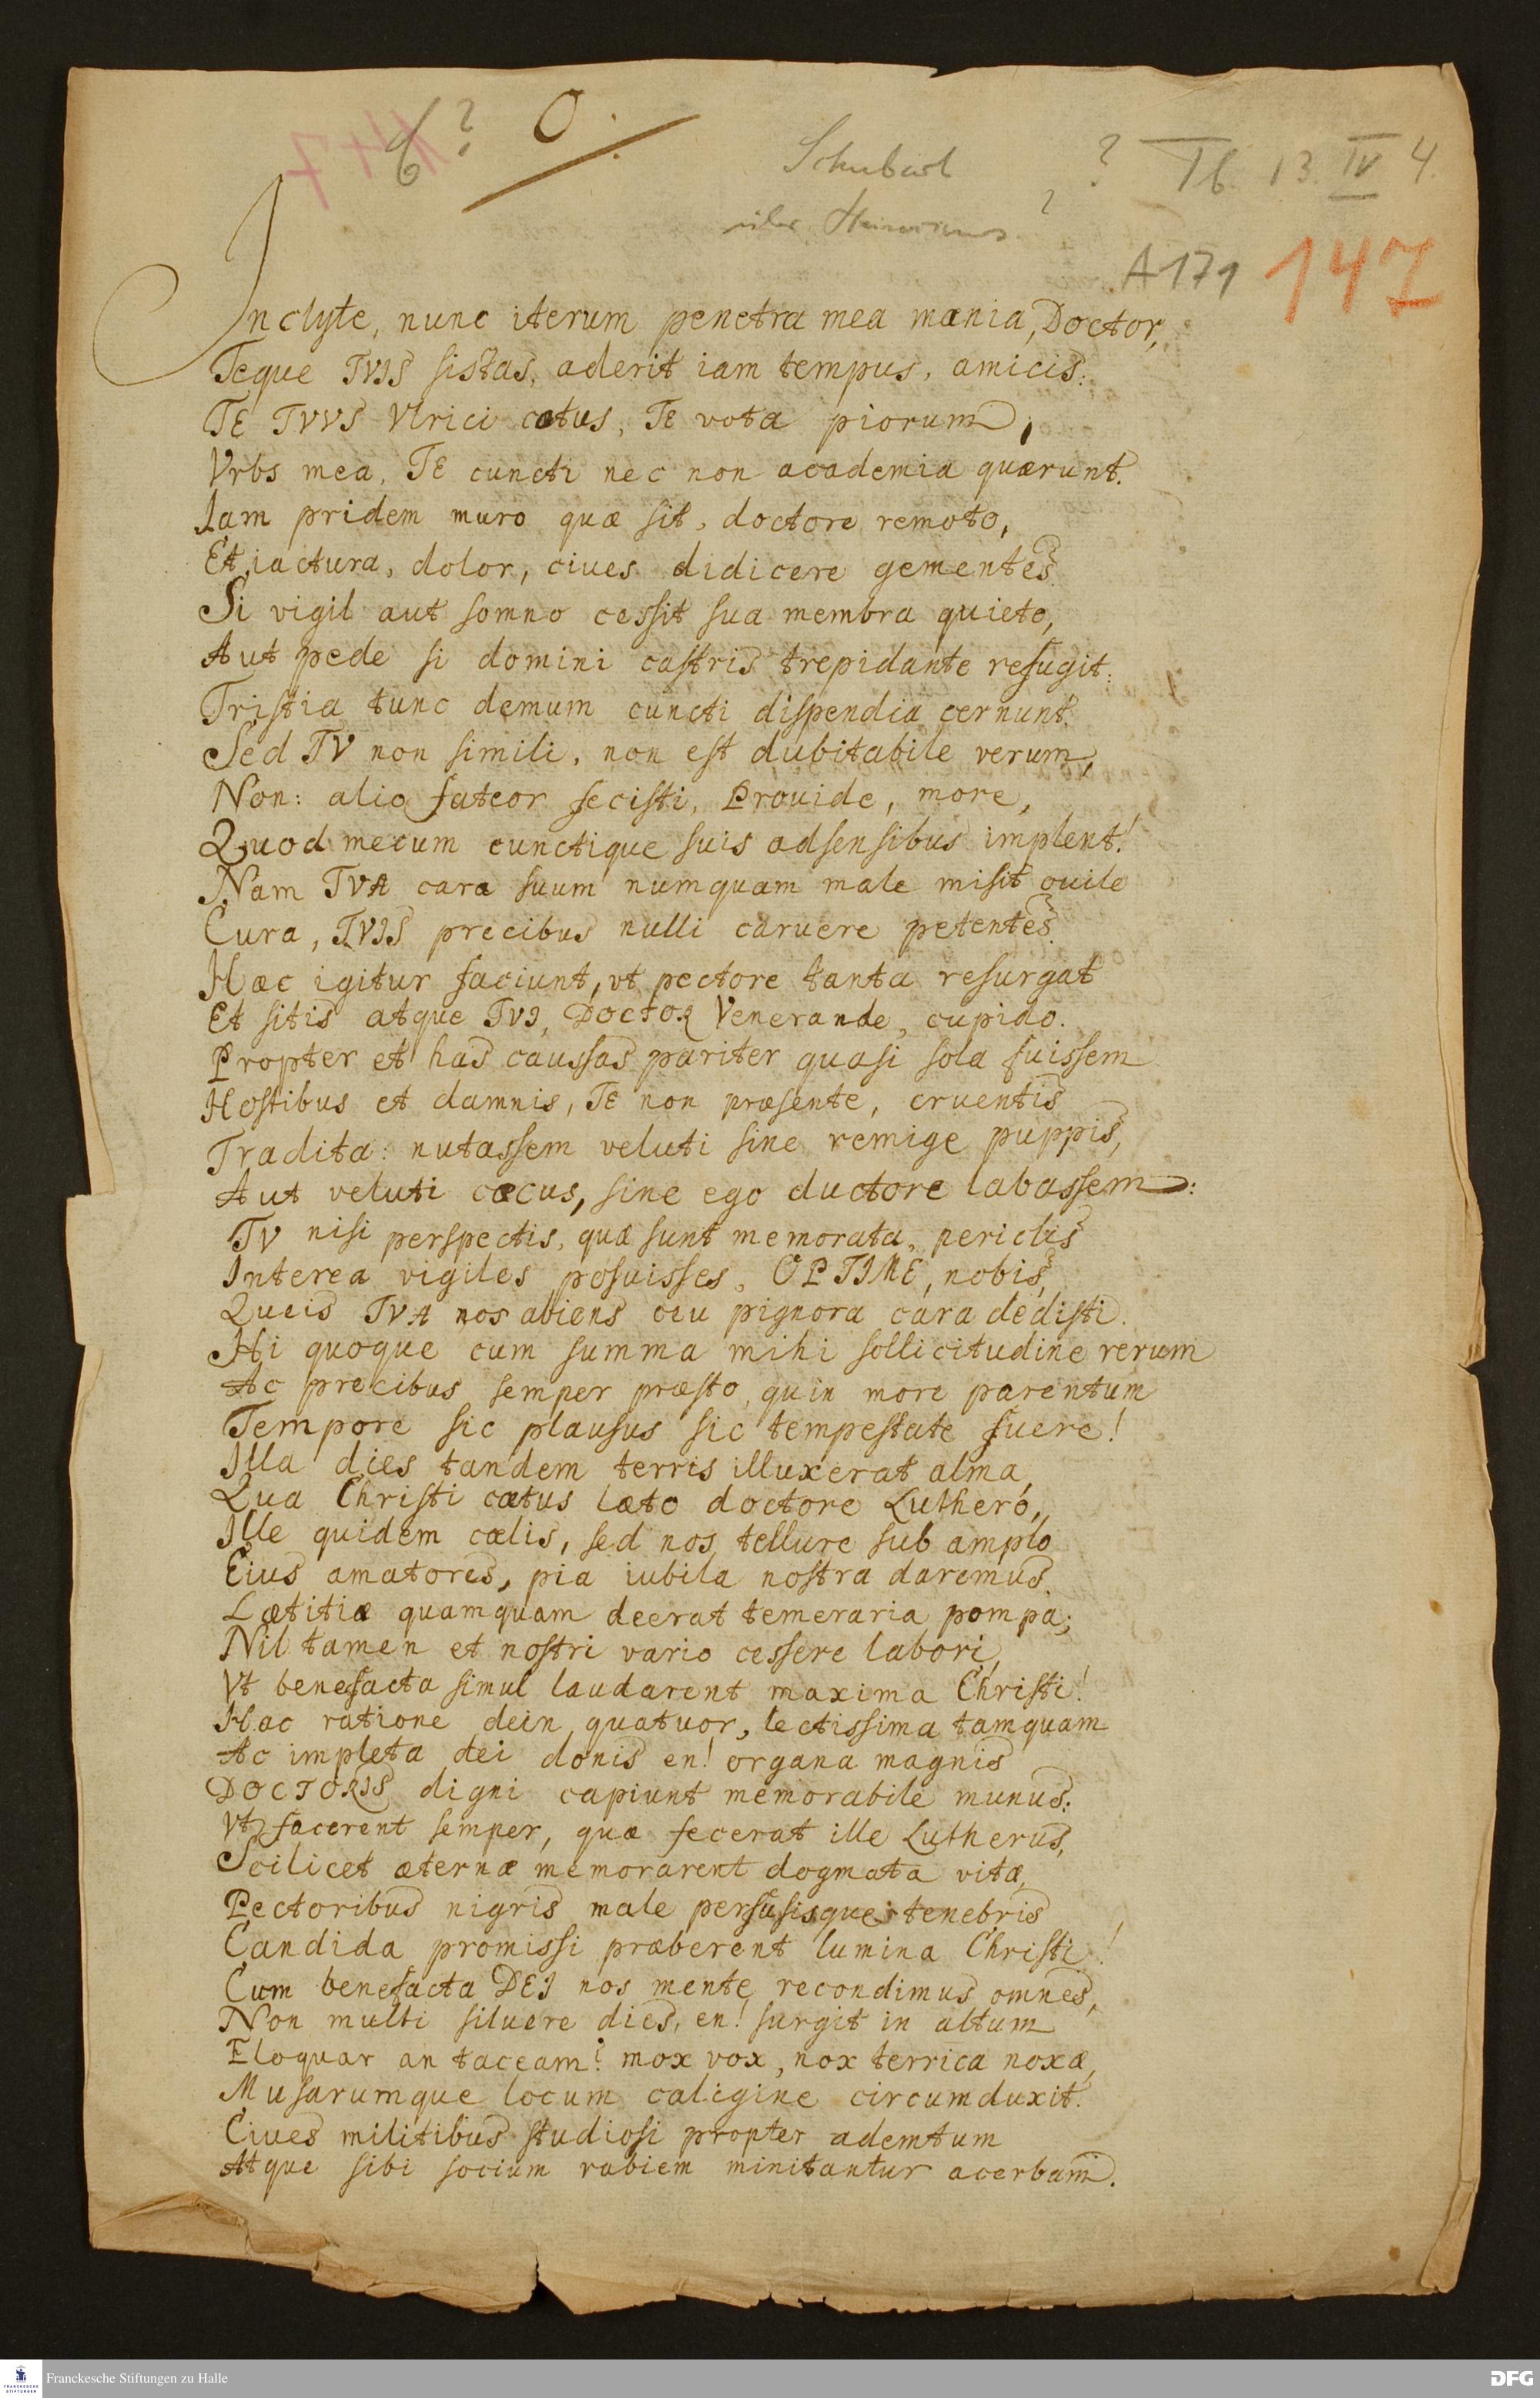 6? O.
Schubart ? Tb 13 IV 4.
?
A 171 147
Inclyte, nunc iterum penetra mea mœnia, Doctor,
Teque TVIS sistas, aderit iam tempus, amicis:
TE TVVS Vlrici cœtus, TE vota piorum,
Vrbs mea, TE cuncti nec non academia quærunt.
Iam pridem muro quæ sit, doctore remoto,
Et iactura, dolor, ciues didicere gementes.
Si vigil aut somno cessit sua membra quieto,
Aut pede si domini castris trepidante refugit:
Tristia tunc demum cuncti dispendia cernunt.
Sed TV non simili, non est dubitabile verum,
Non: alio fateor fecisti, Prouide, more,
Quod mecum cunctique suis adsensibus implent!
Nam TVA cara suum numquam male misit ouile
Cura, TVIS precibus nulli caruere petentes.
Hæc igitur faciunt, vt pectore tanta resurgat
Et sitis atque TVI, DOCTOR Venerande, cupido.
Propter et has caussas pariter quasi sola fuissem
Hostibus et damnis, TE non præsente, cruentis
Tradita: nutassem veluti sine remige puppis,
Aut veluti cœcus, sine ego ductore labassem:
TV nisi perspectis, quæ sunt memorata, periclis
Interea vigiles posuisses, OPTIME, nobis,
Queis TVA nos abiens ceu pignora cara dedisti.
Hi quoque cum summa mihi sollicitudine rerum
Ac precibus semper præsto, quin more parentum
Tempore sic plausus sic tempestate fuere!
Illa dies tandem terris illuxerat alma,
Qua Christi cœtus læto doctore Luthero,
Ille quidem cœlis, sed nos tellure sub amplo
Eius amatores, pia iubila nostra daremus.
Lætitiæ quamquam deerat temeraria pompa;
Nil tamen et nostri vario cessere labori,
Vt benefacta simul laudarent maxima Christi!
Hac ratione dein quatuor, lectissima tamquam
Ac impleta dei donis en! organa magnis
DOCTORIS digni capiunt memorabile munus:
Vt facerent semper, quæ fecerat ille Lutherus,
Scilicet æternæ memorarent dogmata vitæ,
Pectoribus nigris male perfusisque tenebris
Candida promissi præberent lumina Christi!
Cum benefacta DEI nos mente recondimus omnes,
Non multi siluere dies, en! surgit in altum
Eloquar an taceam? mox vox, nox terrica noxæ,
Musarumque locum caligine circumduxit.
Ciues militibus studiosi propter ademtum
Atque sibi socium rabiem minitantur acerbam.
Franckesche Stiftungen zu Halle
DFG